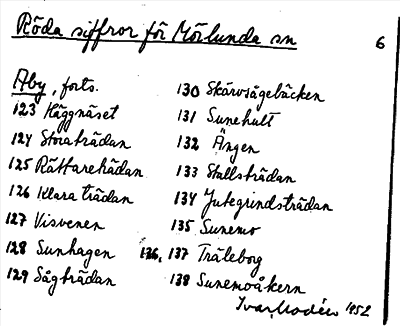 Röda siffror för Mörlunda sn
6
Åby, forts.
123 Häggnäset
124 Storaträdan
125 Rättareträdan
126 Klara trädan
127 Visvenen
128 Sunhagen
129 Sågträdan
130 Skärvsågebäcken
131 Sunehult
132 Ängen
133 Stallsträdan
134 Jutegrindsträdan
135 Sunemo
136, 137 Trälebog
138 Sunemoåkern
Ivar Modéer 1952